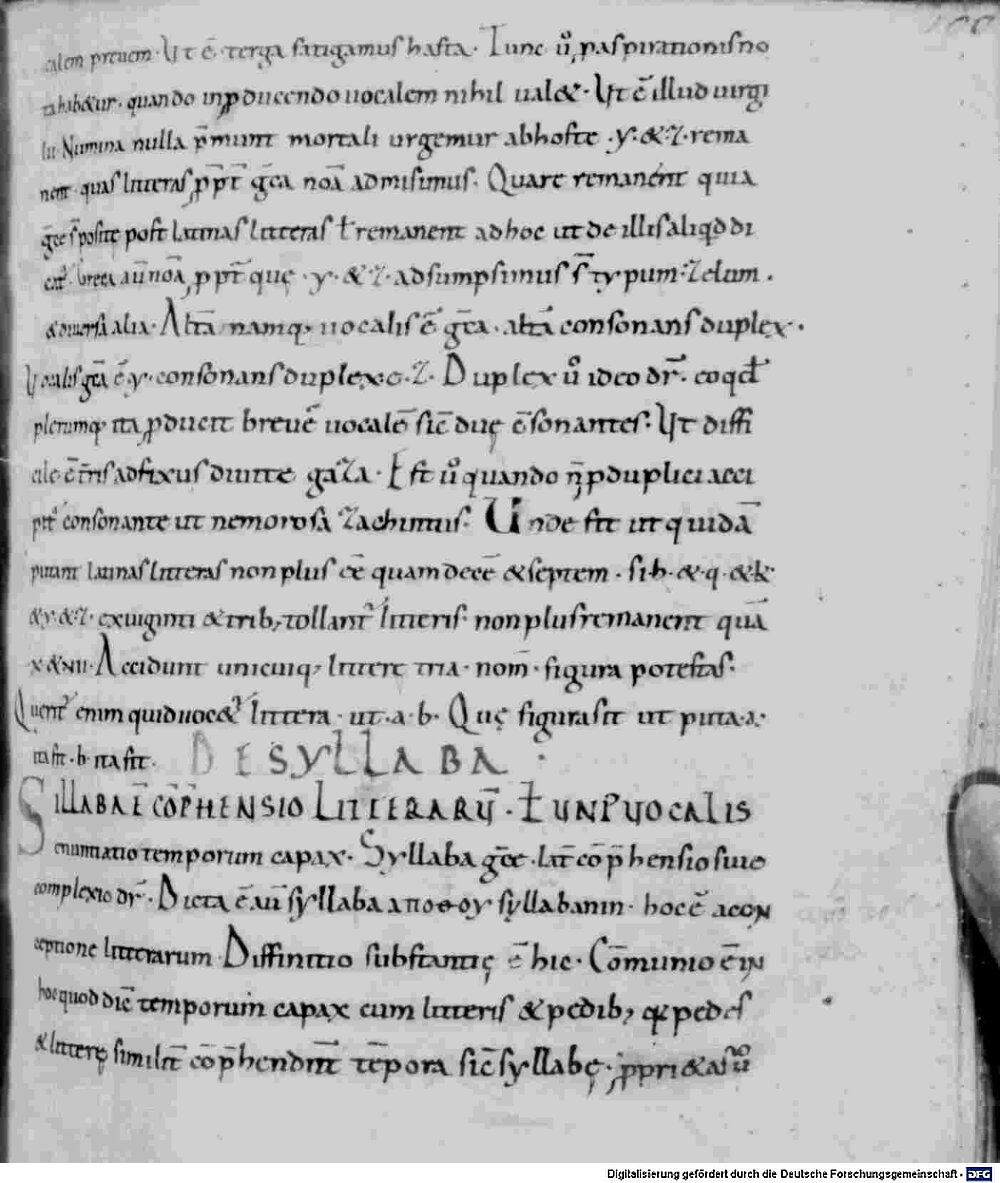 calem preuem · Ut ē · terga fatigamus hasta · Tunc ů p aspirationis no
ta hab&ur · quando in ꝓducendo uocalem nihil ual& · Ut ē illud uirgi
lii Numina nulla p̄munt mortali urgemur ab hoste · y · & · z · rema
nent · quas litteras ꝓpt̄ gr̄ca noā admisimus · Quare remanent quia
gr̄ce s̄ posite post latinas litteras ł remanent ad hoc ut de illis aliqđ di
cat᷑ · Greca aū noā ꝓpt̄ que · y · & · z · adsumpsimus s̄t typum · zelum ·
& diuersa alia · Altā namq; uocalis ē gr̄ca · altā consonans duplex ·
Uocalis gr̄ca ē y · consonans duplex · z · Duplex ů ideo dr̄ · eo qđ
plerumq; ita ꝓducit breuē uocalē sic̄ due c̄sonantes · Ut diffi
cile ē t̄ris adfixus diuite gaza · Est ů quando n̄ p duplici acci
pit᷑ consonante ut nemorosa zachintus · Unde fit ut quidā
putant latinas litteras non plus eē quam dece & septem · si h · & · q · & k
& y · & z · ex uiginti & trib; tollant᷑ litteris · non plus remanent quā
x & vii · Accidunt unicuiq; littere tria · nom̄ · figura potestas ·
Querit᷑ enim quid uocet᷑ littera · ut · a · b · Que figura sit ut puta · a ·
ita sit · b · ita sit · DE SYLLABA ·
SILLABA Ē CŌP̄HENSIO LITTERARŪ · Ł UNIꝰ VOCALIS
enuntiatio temporum capax · Syllaba gr̄ce · lat̄ cōp̄hensio siue
complexio dr̄ · Dicta ē aū syllaba aποθoy syllabanin · hoc ē a con
ceptione litterarum · Diffinitio substantie ē hic · Cōmunio ē in
hoc quod dic̄ temporum capax cum litteris & pedib; q & pedes
& littere similit̄ cōp̄hendunt tēpora sic̄ syllabe · ꝓpri&as ů
Digitalisierung gefördert durch die Deutsche Forschungsgemeinschaft - DFG